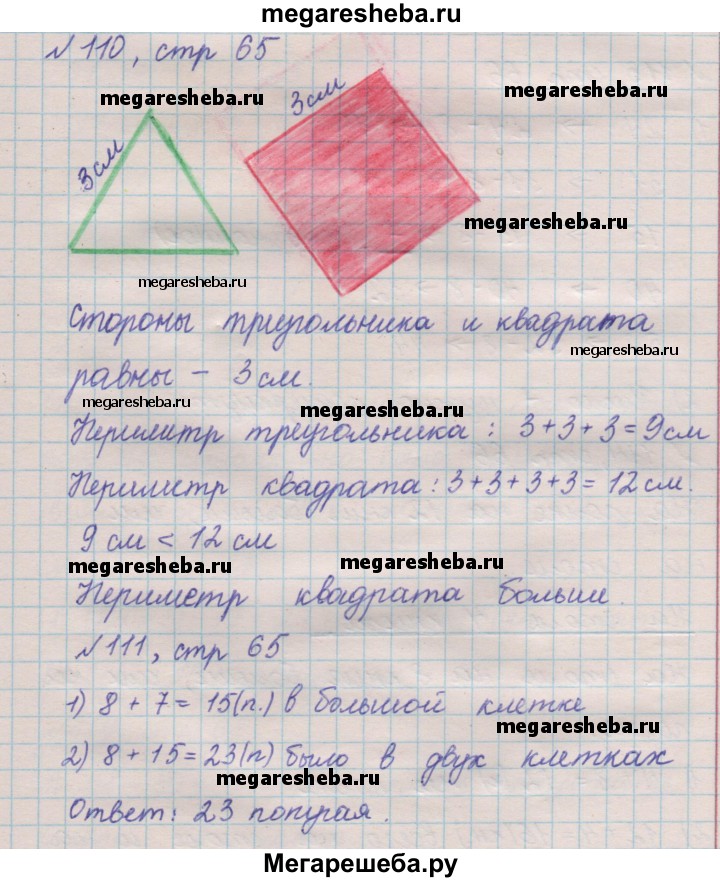 megaresheba.ru
№110, стр 65
megaresheba.ru
megaresheba.ru
3 см
3 см
megaresheba.ru
megaresheba.ru
Стороны треугольника и квадрата
megaresheba.ru
равны – 3 см.
megaresheba.ru
megaresheba.ru
Периметр треугольника : 3+3+3=9см
Периметр квадрата: 3+3+3+3= 12 см.
9 см < 12 см
megaresheba.ru
megaresheba.ru
Периметр квадрата больше.
№111, стр 65
1) 8 + 7 = 15(п.) в большой клетке
megaresheba.ru
2) 8 + 15 = 23(п) было в двух клетках
megaresheba.ru
Ответ: 23 попугая.
Мегарешеба.ру